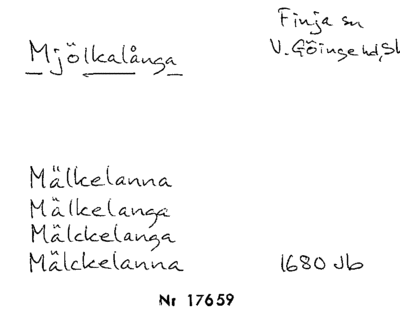 Finja sn
Mjölkalånga
V. Göinge hd, Sk
Mälkelanna
Mälkelanga
Mälckelanga
Mälckelanna 1680 Jb
Nr 17659